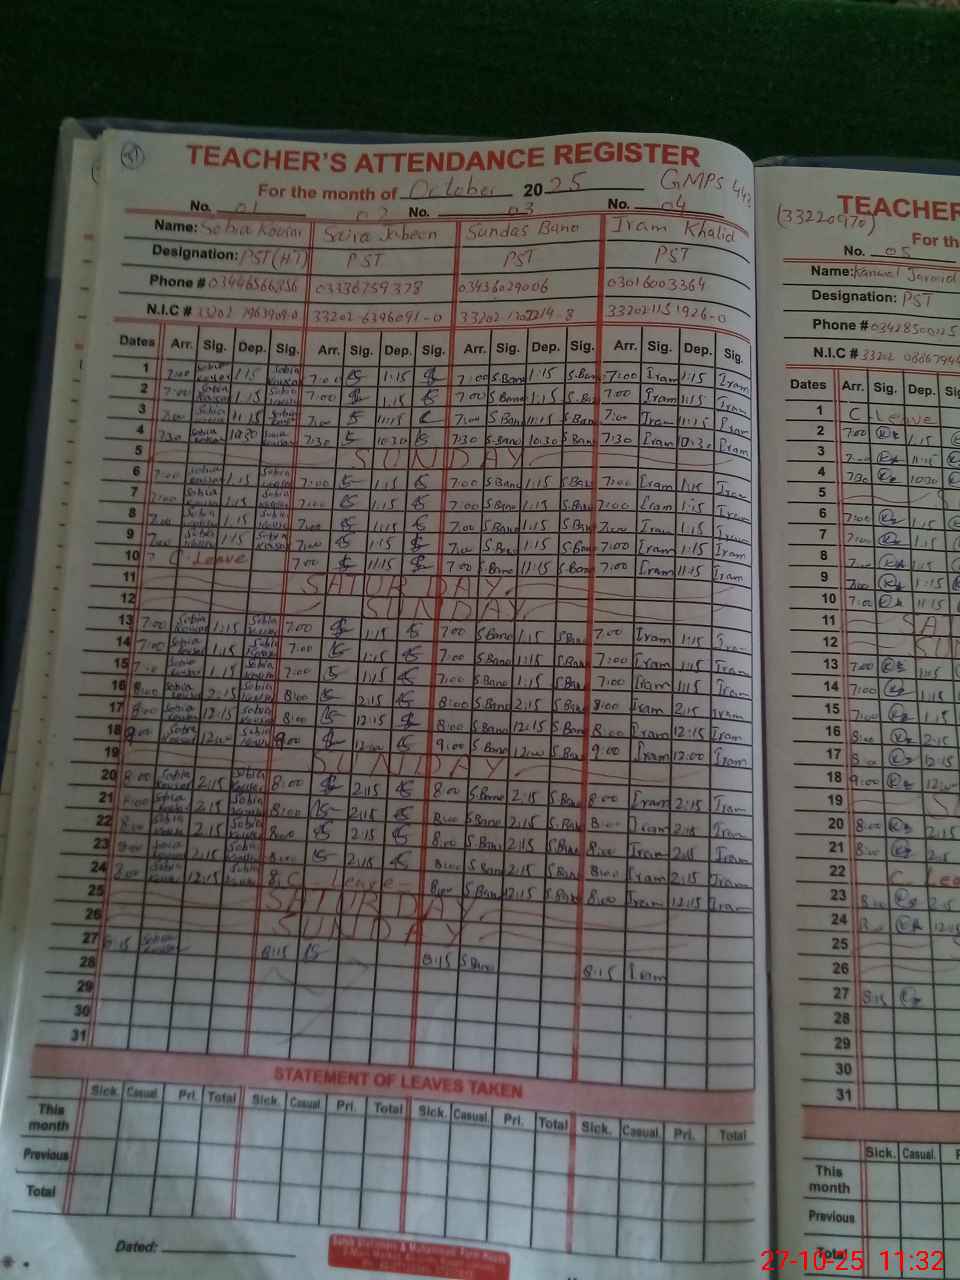 TEACHER'S ATTENDANCE REGISTER
For the month of October 2025 GMPS
No. 01 02 No. 03 No. 04
Name: Sobia Kousar Saira Jabeen Sundas Bano Iram Khalid
Designation: PST(HT) PST PST PST
Phone # 03446566856 03336759378 03436029006 03016003364
N.I.C # 33202 33202-6396091-0 33202 33202
Dates Arr. Sig. Dep. Sig. Arr. Sig. Dep. Sig. Arr. Sig. Dep. Sig. Arr. Sig. Dep. Sig.
1 7:00 Sobia Kousar 1:15 Sobia Kousar 7:00 1:15 7:00 S.Bano 1:15 S.Bano 7:00 Iram 1:15 Iram
2 7:00 Sobia Kousar 1:15 Sobia Kousar 7:00 1:15 7:00 S.Bano 1:15 S.Bano 7:00 Iram 1:15 Iram
3 7:00 Sobia Kousar 11:15 Sobia Kousar 7:00 11:15 7:00 S.Bano 11:15 S.Bano 7:00 Iram 11:15 Iram
4 7:30 Sobia Kousar 10:30 Sobia Kousar 7:30 10:30 7:30 S.Bano 10:30 S.Bano 7:30 Iram 10:30 Iram
5 SUNDAY
6 7:00 Sobia Kousar 1:15 Sobia Kousar 7:00 1:15 7:00 S.Bano 1:15 S.Bano 7:00 Iram 1:15 Iram
7 7:00 Sobia Kousar 1:15 Sobia Kousar 7:00 1:15 7:00 S.Bano 1:15 S.Bano 7:00 Iram 1:15 Iram
8 7:00 Sobia Kousar 1:15 Sobia Kousar 7:00 1:15 7:00 S.Bano 1:15 S.Bano 7:00 Iram 1:15 Iram
9 7:00 Sobia Kousar 1:15 Sobia Kousar 7:00 1:15 7:00 S.Bano 1:15 S.Bano 7:00 Iram 1:15 Iram
10 C-Leave 7:00 11:15 7:00 S.Bano 11:15 S.Bano 7:00 Iram 11:15 Iram
11 SATURDAY
12 SUNDAY
13 7:00 Sobia Kousar 1:15 Sobia Kousar 7:00 1:15 7:00 S.Bano 1:15 S.Bano 7:00 Iram 1:15 Iram
14 7:00 Sobia Kousar 1:15 Sobia Kousar 7:00 1:15 7:00 S.Bano 1:15 S.Bano 7:00 Iram 1:15 Iram
15 7:00 Sobia Kousar 1:15 Sobia Kousar 7:00 1:15 7:00 S.Bano 1:15 S.Bano 7:00 Iram 1:15 Iram
16 8:00 Sobia Kousar 2:15 Sobia Kousar 8:00 2:15 8:00 S.Bano 2:15 S.Bano 8:00 Iram 2:15 Iram
17 8:00 Sobia Kousar 12:15 Sobia Kousar 8:00 12:15 8:00 S.Bano 12:15 S.Bano 8:00 Iram 12:15 Iram
18 9:00 Sobia Kousar 12:00 Sobia Kousar 9:00 12:00 9:00 S.Bano 12:00 S.Bano 9:00 Iram 12:00 Iram
19 SUNDAY
20 8:00 Sobia Kousar 2:15 Sobia Kousar 8:00 2:15 8:00 S.Bano 2:15 S.Bano 8:00 Iram 2:15 Iram
21 8:00 Sobia Kousar 2:15 Sobia Kousar 8:00 2:15 8:00 S.Bano 2:15 S.Bano 8:00 Iram 2:15 Iram
22 8:00 Sobia Kousar 2:15 Sobia Kousar 8:00 2:15 8:00 S.Bano 2:15 S.Bano 8:00 Iram 2:15 Iram
23 8:00 Sobia Kousar 2:15 Sobia Kousar 8:00 2:15 8:00 S.Bano 2:15 S.Bano 8:00 Iram 2:15 Iram
24 Sobia Kousar 12:15 Sobia Kousar C-Leave 8:00 S.Bano 12:15 S.Bano 8:00 Iram 12:15 Iram
25 SATURDAY
26 SUNDAY
27 8:15 Sobia Kousar 8:15 8:15 S.Bano 8:15 Iram
28
29
30
31
STATEMENT OF LEAVES TAKEN
Sick. Casual. Pri. Total Sick. Casual. Pri. Total Sick. Casual. Pri. Total Sick. Casual. Pri. Total
This month
Previous
Total
Dated:
TEACHER
(33220970) For th
No. 05
Name: Kanwal Javaid
Designation: PST
Phone # 0342850
N.I.C # 33202
Dates Arr. Sig. Dep.
1 C Leave
2 7:00 1:15
3 7:00 11:15
4 7:30 10:30
5 S
6 7:00 1:15
7 7:00 1:15
8 7:00 1:15
9 7:00 1:15
10 7:00 11:15
11 SA
12 SU
13 7:00 1:15
14 7:00 1:15
15 7:00 1:15
16 8:00 2:15
17 8:00 12:15
18 9:00 12:00
19 S
20 8:00 2:15
21 8:00 2:15
22 C Lea
23 8:00 2:15
24 8:00 12:15
25
26
27 8:15
28
29
30
31
Sick. Casual.
This month
Previous
Total
27-10-25 11:32